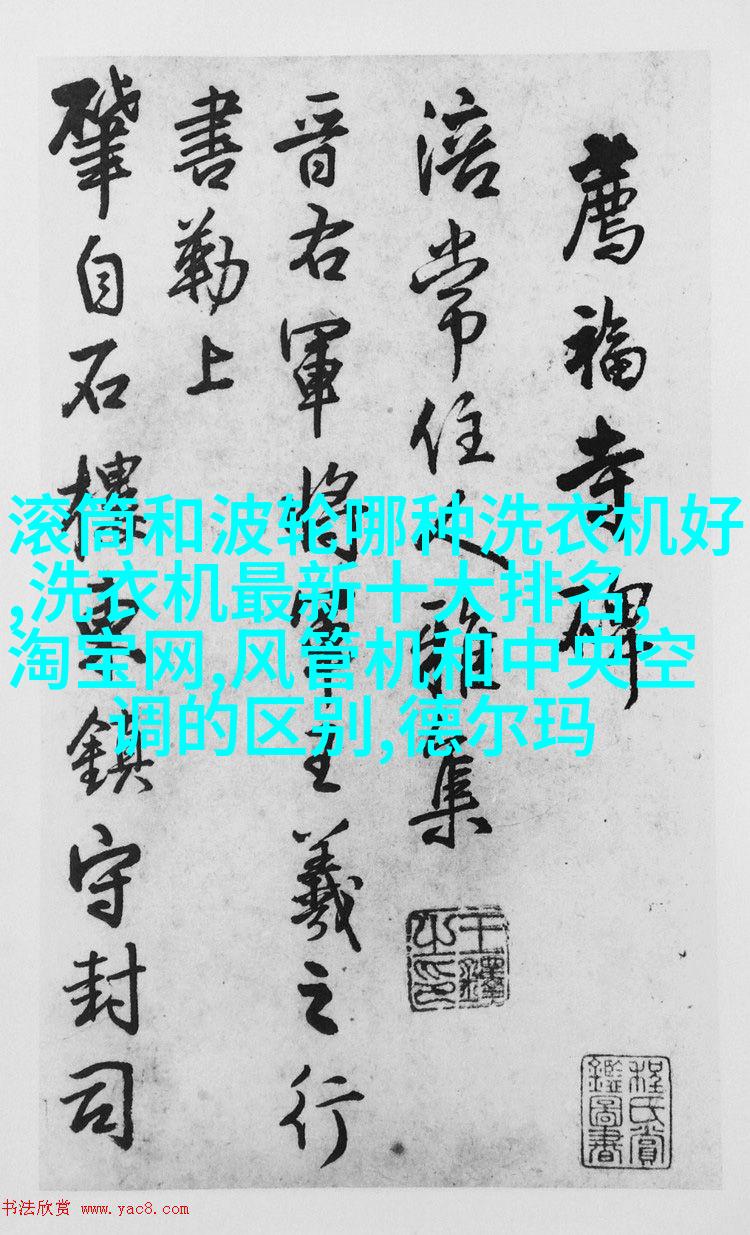 薦福寺碑
涪常住

晋右軍將軍王羲之行
書勒上
肇自石樓雲鎮守封司
滚筒和波轮哪种洗衣机好
,洗衣机最新十大排名,
淘宝网,风管机和中央空
调的区别,德尔玛
王鐸之印
程氏賞鑑圖書
书法欣赏 www.yac8.com